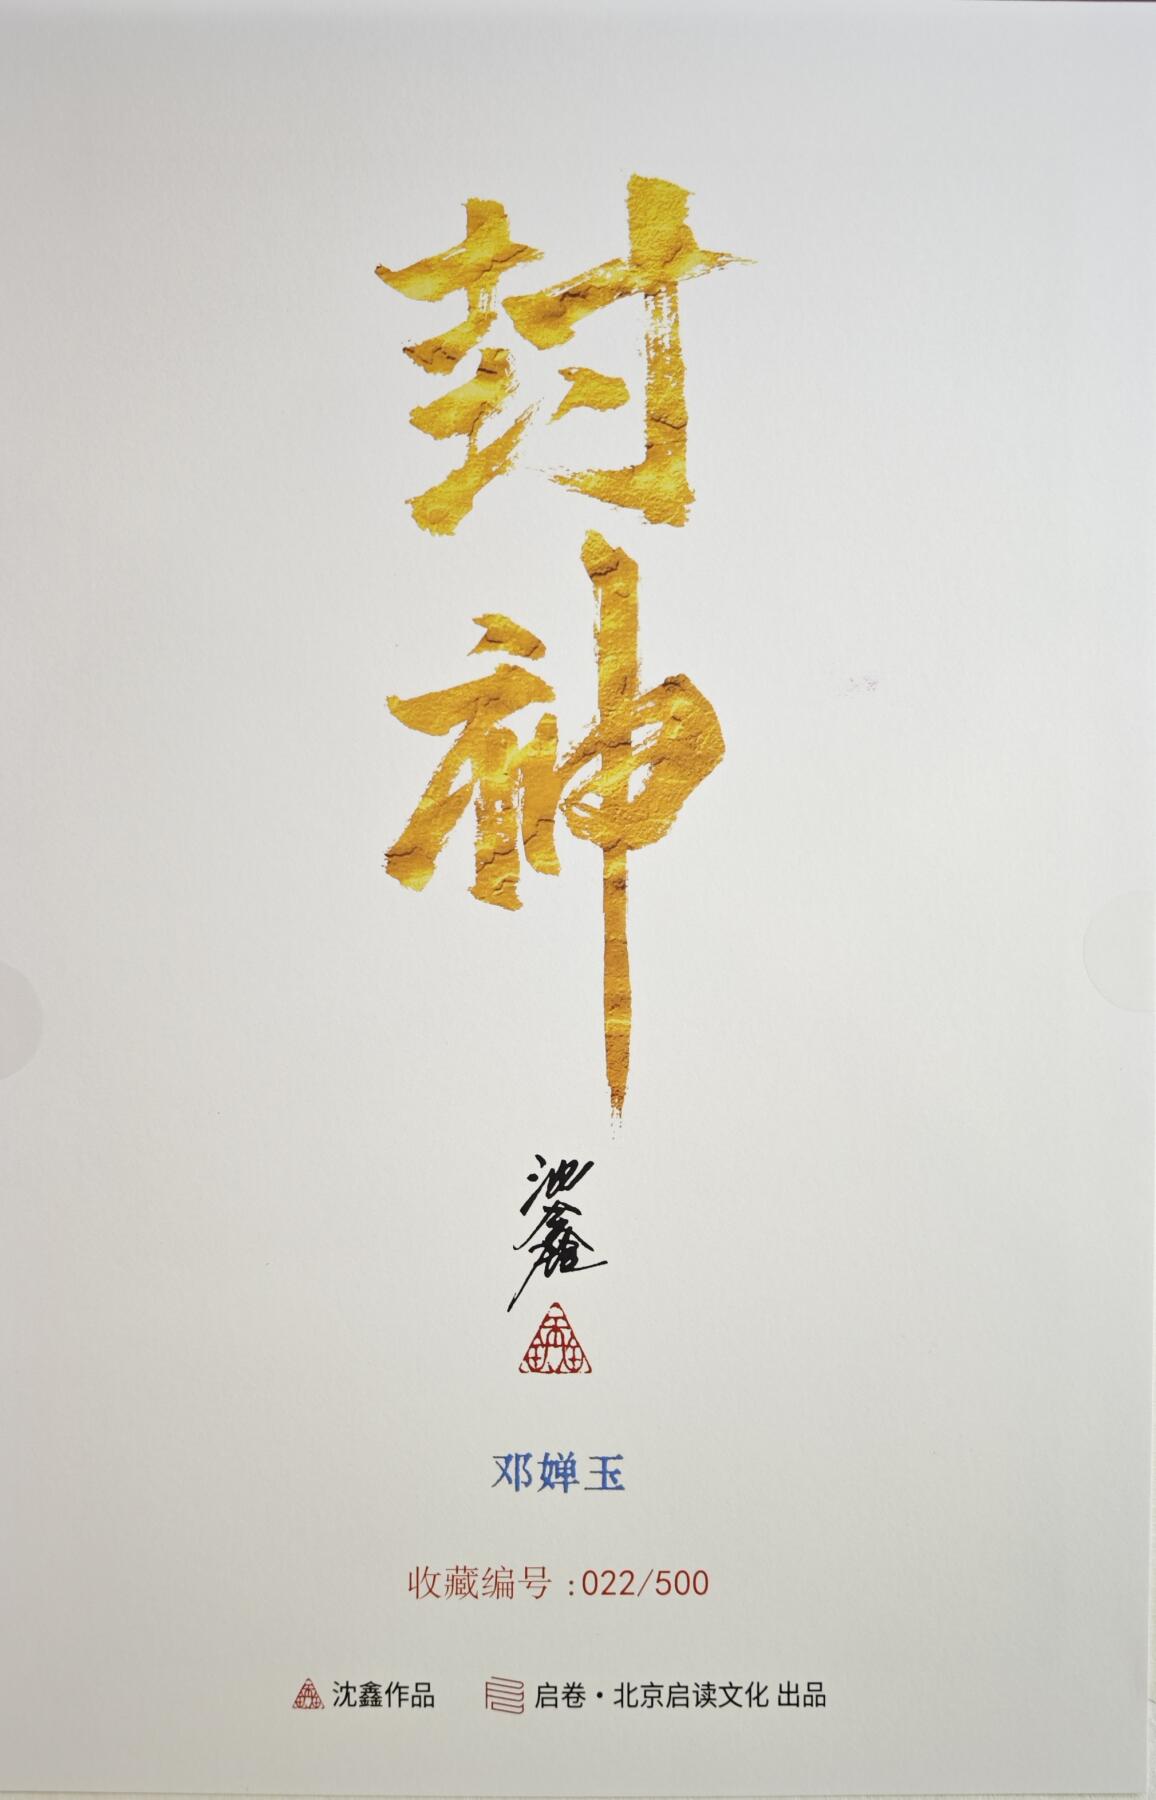 封
神
沈鑫
邓婵玉
收藏编号:022/500
沈鑫作品 启卷·北京启读文化 出品